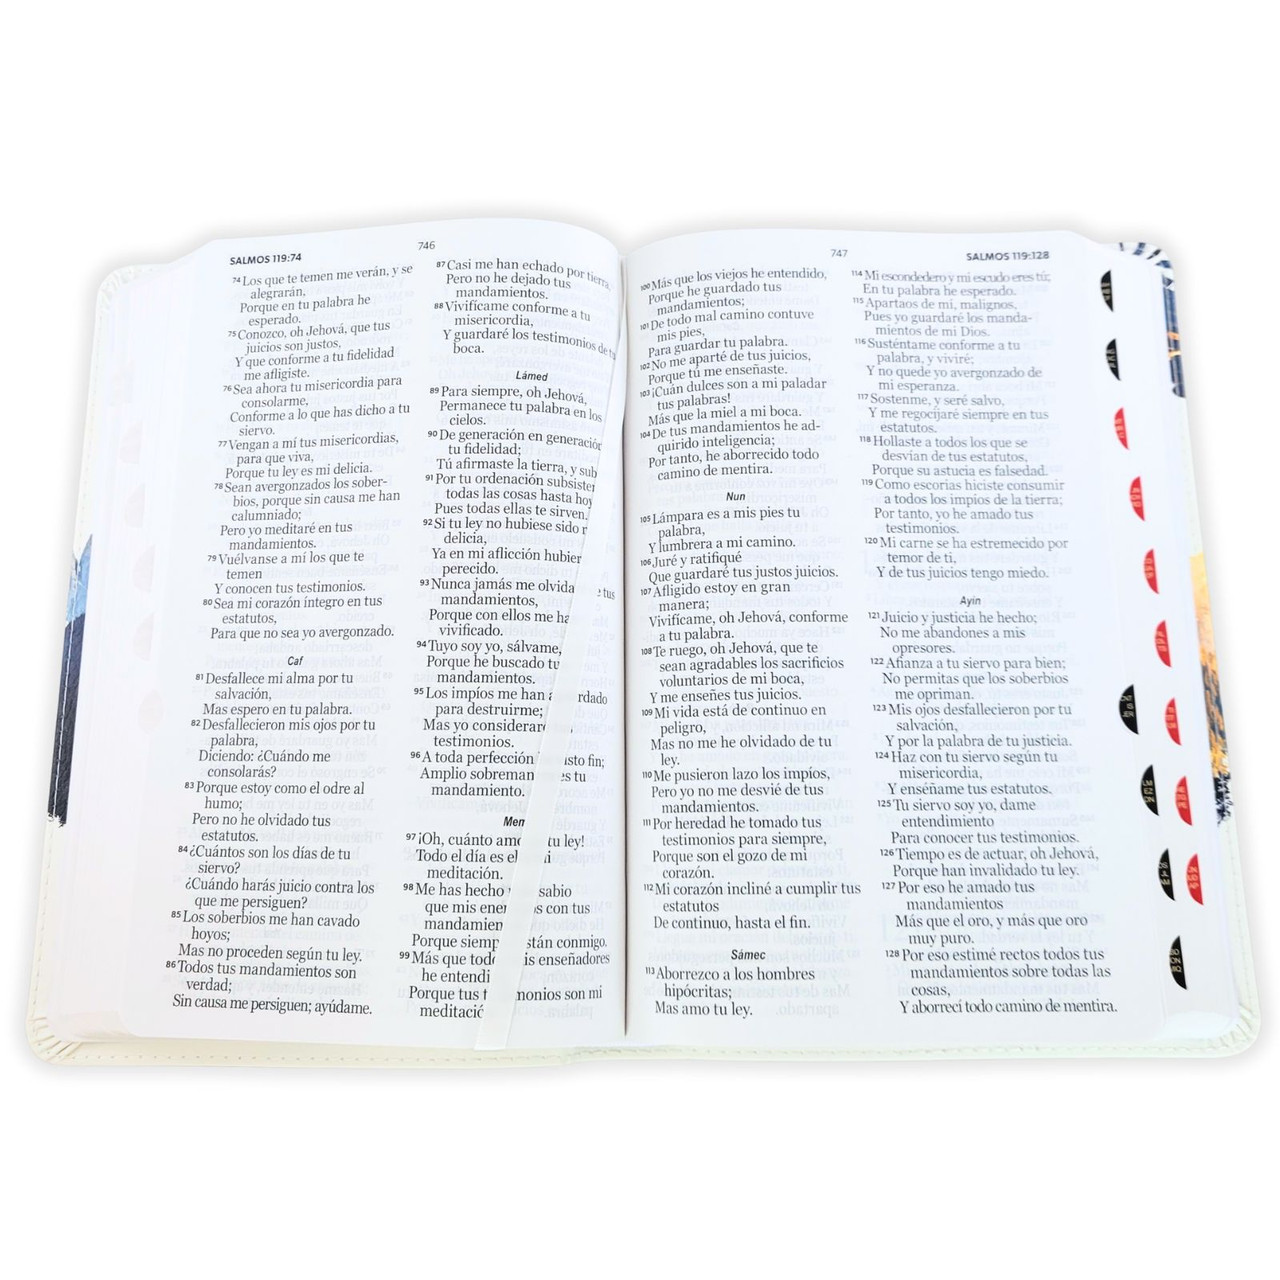 SALMOS 119:74
746
74 Los que te temen me verán, y se
alegrarán,
Porque en tu palabra he
esperado.
75 Conozco, oh Jehová, que tus
juicios son justos,
Y que conforme a tu fidelidad
me afligiste.
76 Sea ahora tu misericordia para
consolarme,
Conforme a lo que has dicho a tu
siervo.
77 Vengan a mí tus misericordias,
para que viva,
Porque tu ley es mi delicia.
78 Sean avergonzados los sober-
bios, porque sin causa me han
calumniado;
Pero yo meditaré en tus
mandamientos.
79 Vuélvanse a mí los que te
temen
Y conocen tus testimonios.
80 Sea mi corazón íntegro en tus
estatutos,
Para que no sea yo avergonzado.
Caf
81 Desfallece mi alma por tu
salvación,
Mas espero en tu palabra.
82 Desfallecieron mis ojos por tu
palabra,
Diciendo: ¿Cuándo me
consolarás?
83 Porque estoy como el odre al
humo;
Pero no he olvidado tus
estatutos.
84 ¿Cuántos son los días de tu
siervo?
¿Cuándo harás juicio contra los
que me persiguen?
85 Los soberbios me han cavado
hoyos;
Mas no proceden según tu ley.
86 Todos tus mandamientos son
verdad;
Sin causa me persiguen; ayúdame.
87 Casi me han echado por tierra,
Pero no he dejado tus
mandamientos.
88 Vivifícame conforme a tu
misericordia,
Y guardaré los testimonios de tu
boca.
Lámed
89 Para siempre, oh Jehová,
Permanece tu palabra en los
cielos.
90 De generación en generación
tu fidelidad;
Tú afirmaste la tierra, y sub
91 Por tu ordenación subsisten
todas las cosas hasta hoy
Pues todas ellas te sirven.
92 Si tu ley no hubiese sido
delicia,
Ya en mi aflicción hubier
perecido.
93 Nunca jamás me olvida e tus
mandamientos,
Porque con ellos me ha
vivificado.
94 Tuyo soy yo, sálvame,
Porque he buscado tu
mandamientos.
95 Los impíos me han a rdado
para destruirme;
Mas yo considerar
testimonios.
96 A toda perfección usto fin;
Amplio sobreman es tu
mandamiento.
Mem
97 ¡Oh, cuánto amo tu ley!
Todo el día es el mi
meditación.
98 Me has hecho sabio
que mis ene os con tus
mandamien
Porque siemp están conmigo.
99 Más que tod is enseñadores
he entendi
Porque tus t imonios son mi
meditació
747
SALMOS 119:128
100 Más que los viejos he entendido,
Porque he guardado tus
mandamientos;
101 De todo mal camino contuve
mis pies,
Para guardar tu palabra.
102 No me aparté de tus juicios,
Porque tú me enseñaste.
103 ¡Cuán dulces son a mi paladar
tus palabras!
Más que la miel a mi boca.
104 De tus mandamientos he ad-
quirido inteligencia;
Por tanto, he aborrecido todo
camino de mentira.
Nun
105 Lámpara es a mis pies tu
palabra,
Y lumbrera a mi camino.
106 Juré y ratifiqué
Que guardaré tus justos juicios.
107 Afligido estoy en gran
manera;
Vivifícame, oh Jehová, conforme
a tu palabra.
108 Te ruego, oh Jehová, que te
sean agradables los sacrificios
voluntarios de mi boca,
Y me enseñes tus juicios.
109 Mi vida está de continuo en
peligro,
Mas no me he olvidado de tu
ley.
110 Me pusieron lazo los impíos,
Pero yo no me desvié de tus
mandamientos.
111 Por heredad he tomado tus
testimonios para siempre,
Porque son el gozo de mi
corazón.
112 Mi corazón incliné a cumplir tus
estatutos
De continuo, hasta el fin.
Sámec
113 Aborrezco a los hombres
hipócritas;
Mas amo tu ley.
114 Mi escondedero y mi escudo eres tú;
En tu palabra he esperado.
115 Apartaos de mí, malignos,
Pues yo guardaré los manda-
mientos de mi Dios.
116 Susténtame conforme a tu
palabra, y viviré;
Y no quede yo avergonzado de
mi esperanza.
117 Sostenme, y seré salvo,
Y me regocijaré siempre en tus
estatutos.
118 Hollaste a todos los que se
desvían de tus estatutos,
Porque su astucia es falsedad.
119 Como escorias hiciste consumir
a todos los impíos de la tierra;
Por tanto, yo he amado tus
testimonios.
120 Mi carne se ha estremecido por
temor de ti,
Y de tus juicios tengo miedo.
Ayin
121 Juicio y justicia he hecho;
No me abandones a mis
opresores.
122 Afianza a tu siervo para bien;
No permitas que los soberbios
me opriman.
123 Mis ojos desfallecieron por tu
salvación,
Y por la palabra de tu justicia.
124 Haz con tu siervo según tu
misericordia,
Y enséñame tus estatutos.
125 Tu siervo soy yo, dame
entendimiento
Para conocer tus testimonios.
126 Tiempo es de actuar, oh Jehová,
Porque han invalidado tu ley.
127 Por eso he amado tus
mandamientos
Más que el oro, y más que oro
muy puro.
128 Por eso estimé rectos todos tus
mandamientos sobre todas las
cosas,
Y aborrecí todo camino de mentira.